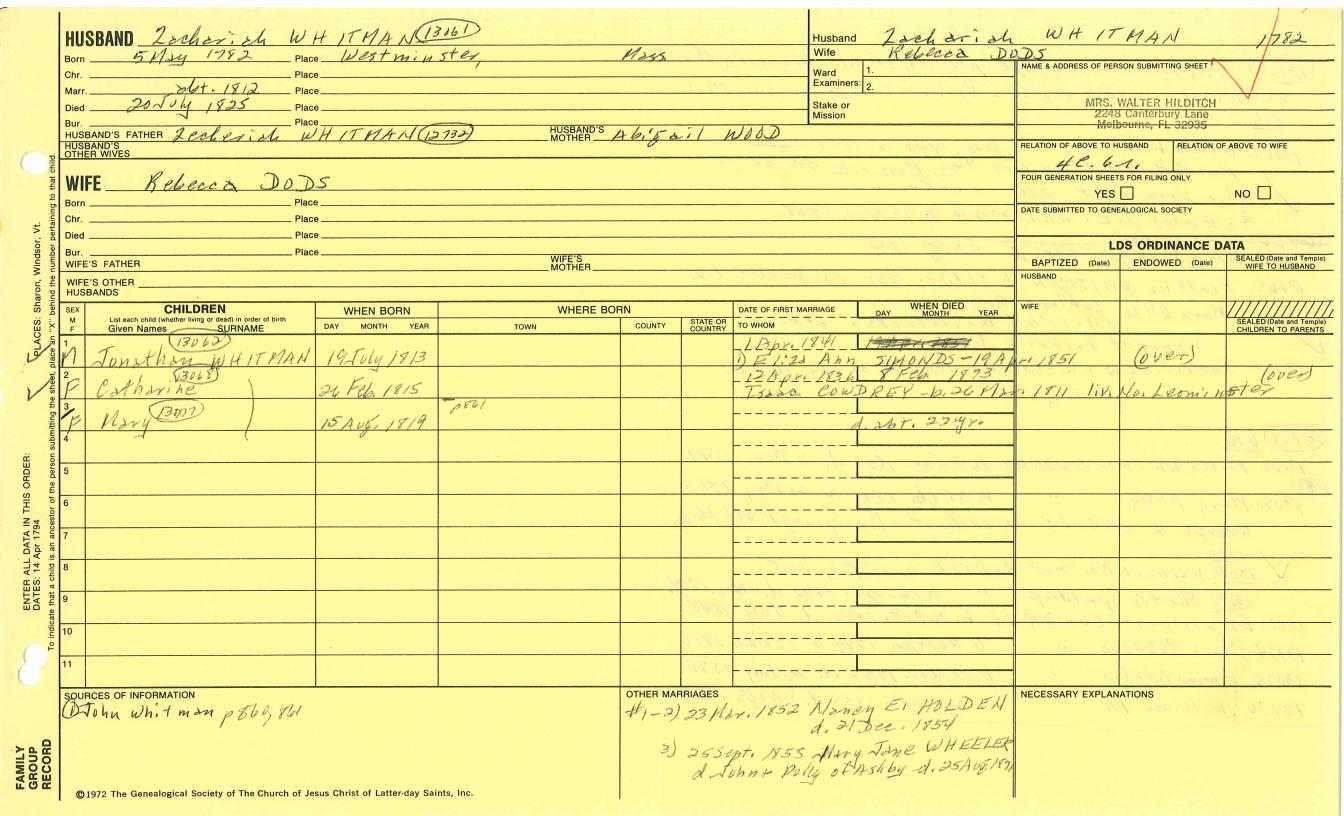 HUSBAND Zachariah WHITMAN 13061
Born 5 May 1782 Place Westminster, Mass
Chr. Place
Marr. abt. 1812 Place
Died 20 July 1825 Place
Bur. Place
HUSBAND'S FATHER Zechariah WHITMAN 12732 HUSBAND'S MOTHER Abigail WOOD
HUSBAND'S OTHER WIVES
Husband Zachariah WHITMAN 1782
Wife Rebecca DODS
Ward Examiners: 1. 2.
Stake or Mission
NAME & ADDRESS OF PERSON SUBMITTING SHEET
MRS. WALTER HILDITCH
2248 Canterbury Lane
Melbourne, FL 32935
RELATION OF ABOVE TO HUSBAND RELATION OF ABOVE TO WIFE
4C. 6r.
FOUR GENERATION SHEETS FOR FILING ONLY
YES NO
DATE SUBMITTED TO GENEALOGICAL SOCIETY
WIFE Rebecca DODS
Born Place
Chr. Place
Died Place
Bur. Place
WIFE'S FATHER WIFE'S MOTHER
WIFE'S OTHER HUSBANDS
LDS ORDINANCE DATA
BAPTIZED (Date) ENDOWED (Date) SEALED (Date and Temple) WIFE TO HUSBAND
HUSBAND
WIFE
SEALED (Date and Temple) CHILDREN TO PARENTS
SEX M F
CHILDREN
List each child (whether living or dead) in order of birth
Given Names SURNAME
WHEN BORN DAY MONTH YEAR
WHERE BORN TOWN COUNTY STATE OR COUNTRY
DATE OF FIRST MARRIAGE TO WHOM
WHEN DIED DAY MONTH YEAR
1 13062 1 Apr. 1841
M Jonathan WHITMAN 19 July 1813 1) Eliza Ann SIMONDS - 19 Apr 1851 (over)
2 13068 12 Apr. 1836 8 Feb 1893 (over)
F Catharine 26 Feb. 1815 Isaac COWDREY - b. 26 Mar. 1811 liv. No. Leominster
3 13077 p861
F Mary 15 Aug. 1819 d. abt. 23 yr.
4
5
6
7
8
9
10
11
SOURCES OF INFORMATION
① John Whitman p860, 861
OTHER MARRIAGES
#1-2) 23 Mar. 1852 Nancy E. HOLDEN
d. 21 Dec. 1854
3) 25 Sept. 1855 Mary Jane WHEELER
d John + Polly of Ashby d. 25 Aug
NECESSARY EXPLANATIONS
©1972 The Genealogical Society of The Church of Jesus Christ of Latter-day Saints, Inc.
FAMILY GROUP RECORD
ENTER ALL DATA IN THIS ORDER:
DATES: 14 Apr 1794 PLACES: Sharon, Windsor, Vt.
To indicate that a child is an ancestor of the person submitting the sheet, place an "X" behind the number pertaining to that child.